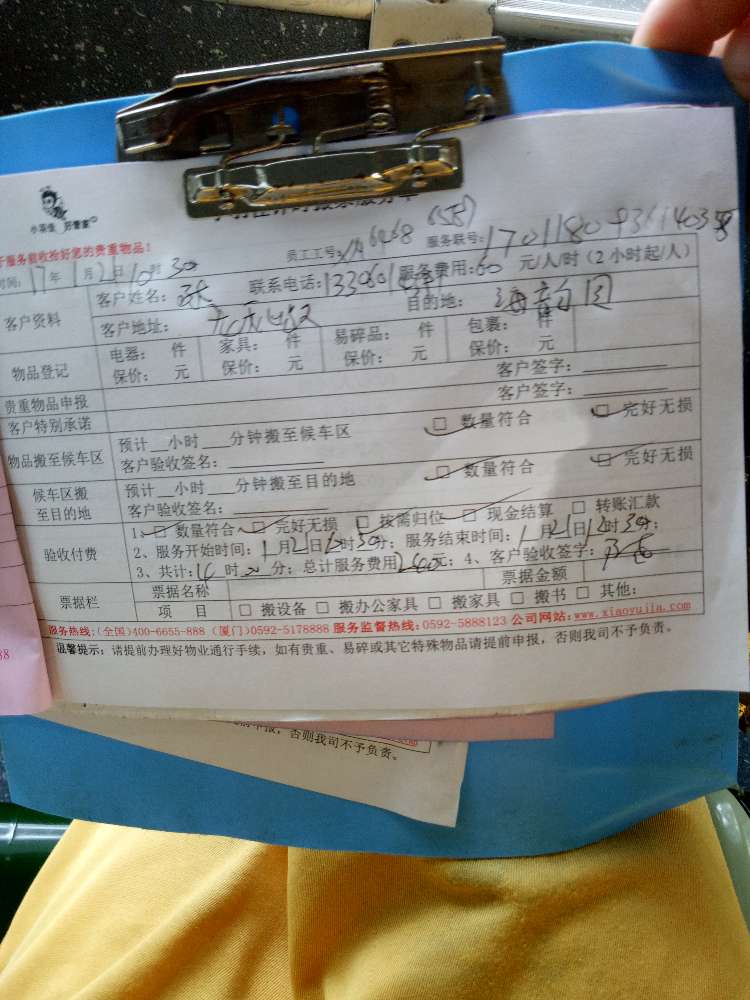 小羽佳 好管家
服务前收拾好您的贵重物品！
员工工号: 服务联号:
时间: 17年1月21日10时30
客户资料 客户姓名: 联系电话: 服务费用:60 元/人/时（2小时起/人）
客户地址: 目的地:
物品登记 电器: 件 家具: 件 易碎品: 件 包裹: 件
保价: 元 保价: 元 保价: 元 保价: 元
贵重物品申报 客户签字:
客户特别承诺 客户签字:
物品搬至候车区 预计__小时___分钟搬至候车区 □ 数量符合 □ 完好无损
客户验收签名:
候车区搬至目的地 预计__小时___分钟搬至目的地 □ 数量符合 □ 完好无损
客户验收签名:
验收付费 1、□ 数量符合 □ 完好无损 □ 按需归位 □ 现金结算 □ 转账汇款
2、服务开始时间: 1月21日10时30分; 服务结束时间: 1月21日12时30分;
3、共计: 时 分; 总计服务费用240元; 4、客户验收签字:
票据栏 票据名称 票据金额
项 目 □ 搬设备 □ 搬办公家具 □ 搬家具 □ 搬书 □ 其他:
服务热线:(全国)400-6655-888 (厦门)0592-5178888 服务监督热线:0592-5888123 公司网站:www.xiaoyujia.com
温馨提示: 请提前办理好物业通行手续，如有贵重、易碎或其它特殊物品请提前申报，否则我司不予负责。
否则我司不予负责。